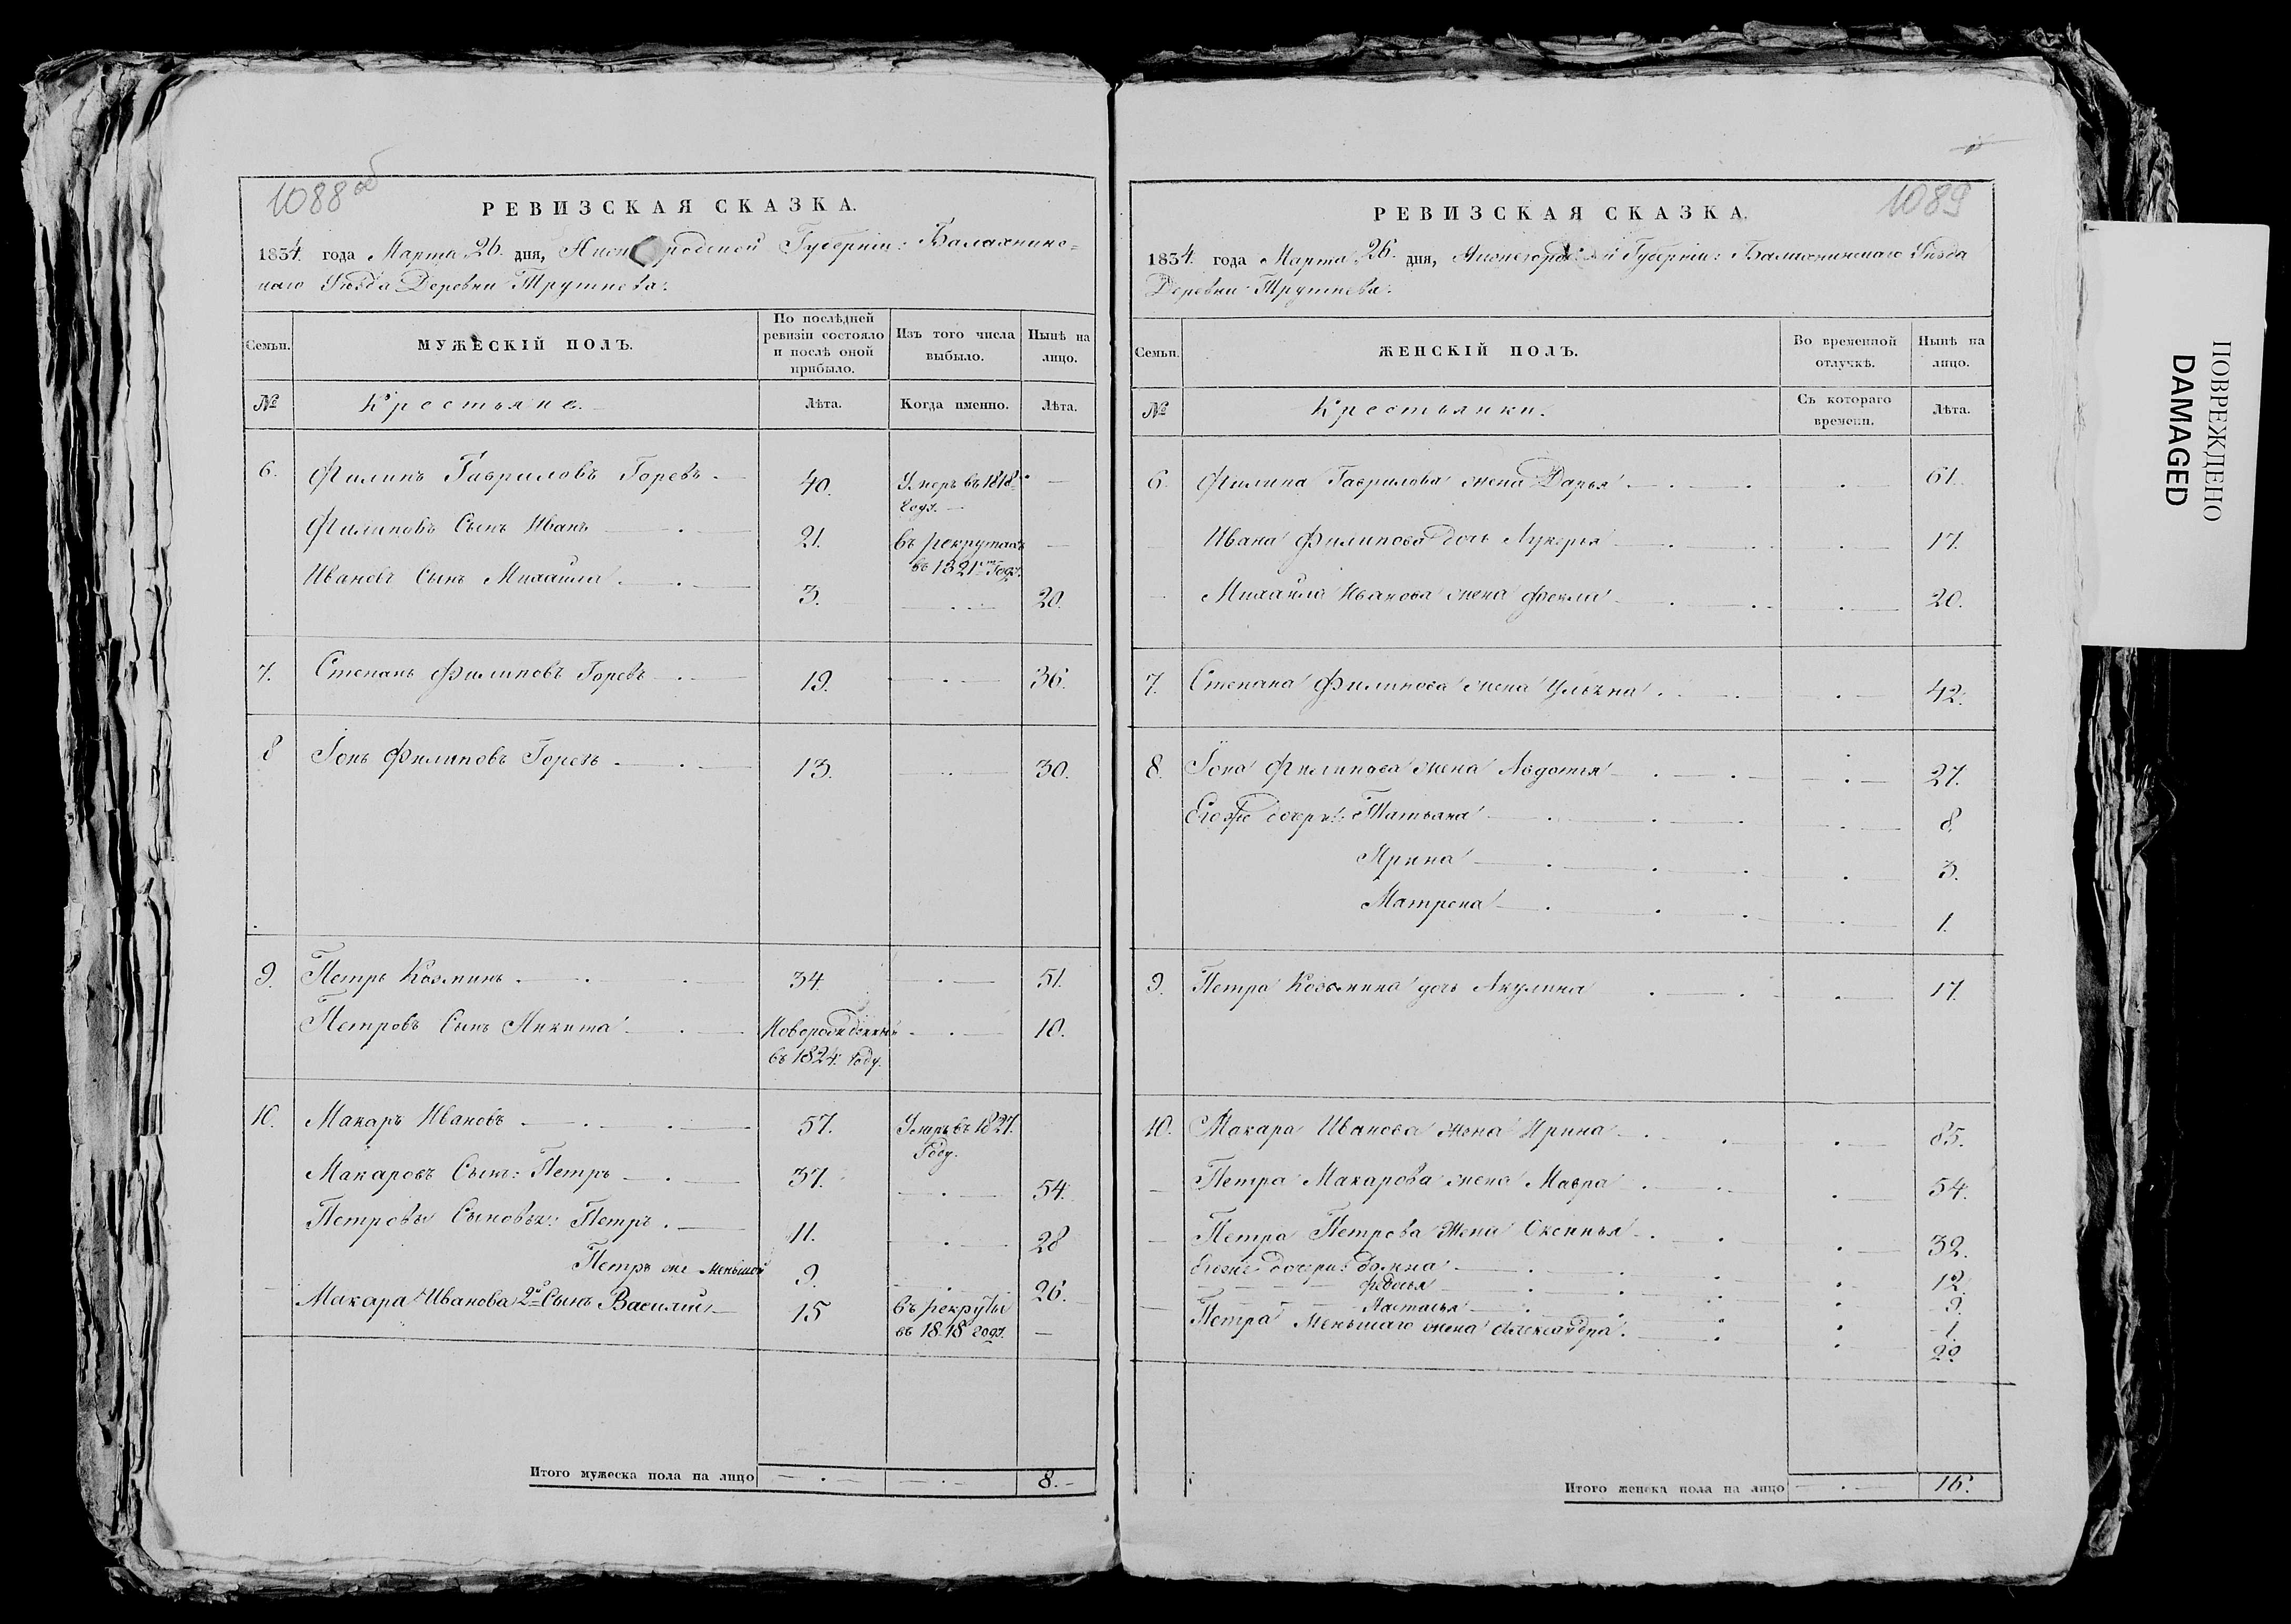 1088 об
РЕВИЗСКАЯ СКАЗКА.
1834. года Марта 26. дня, Губерніи: Балахнинс=
каго Уѣзда Деревни Трутнева:
Семьи.
МУЖЕСКІЙ ПОЛЪ.
По послѣдней
ревизіи состояло
и послѣ оной
прибыло.
Изъ того числа
выбыло.
Нынѣ на
лицо.
№
Крестьяне.
Лѣта.
Когда именно.
Лѣта.
6. Филипъ Гавриловъ Горевъ 40. Умеръ въ 1818.
году.
Филиповъ Сынъ Иванъ 21. въ рекрутахъ
въ 1821м году.
Ивановъ Сынъ Михайла 3. 20.
7. Степанъ Филиповъ Горевъ 19. 36.
8 Іонъ Филиповъ Горевъ 13. 30.
9. Петръ Козминъ 34 51.
Петровъ Сынъ Никита Новорожденный 10.
въ 1824. году.
10. Макаръ Ивановъ 57. Умеръ въ 1827.
Году.
Макаровъ Сынъ: Петръ 37. 54.
Петровы Сыновья: Петръ 11. 28
Петръ же меньшой 9. 26.
Макара Иванова 2й Сынъ Василий 15 въ рекруты
въ 1818 году.
Итого мужеска пола на лицо 8.
1089
РЕВИЗСКАЯ СКАЗКА.
1834. года Марта 26. дня, Губерніи: Балахнинскаго Уѣзда
Деревни Трутнева:
Семьи.
ЖЕНСКІЙ ПОЛЪ.
Во временной
отлучкѣ.
Нынѣ на
лицо.
№
Крестьянки.
Съ котораго
времени.
Лѣта.
6. Филипа Гаврилова жена Дарья 61.
Ивана Филипова дочь Лукерья 17.
Михайла Иванова жена Фекла 20.
7. Степана Филипова жена Ульяна 42.
8. Іона Филипова жена Авдотья 27.
Егоже дочери: Татьяна 8.
Ирина 3.
Матрена 1.
9. Петра Козьмина дочь Акулина 17.
10. Макара Иванова жена Ирина 85.
Петра Макарова жена Мавра 54.
Петра Петрова Жена Оксинья 32.
Егоже дочери: Домна 12.
Федосья 9.
Настасья 1.
Петра Меньшаго жена Александра 29.
Итого женска пола на лицо 16.
ПОВРЕЖДЕНО
DAMAGED